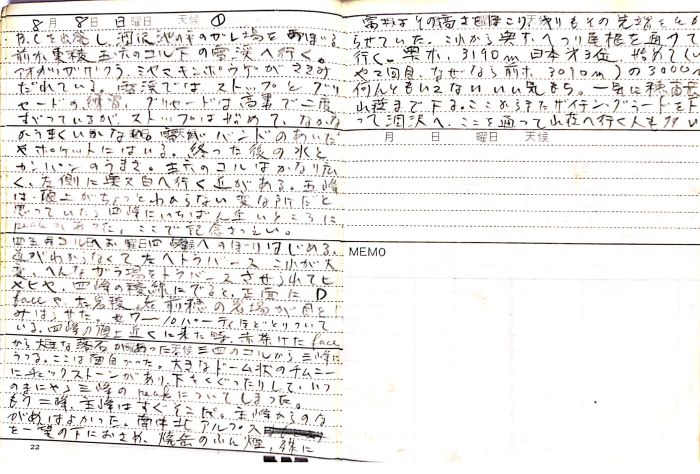 8月 8日 日曜日 天候 ①
涸沢池の平のガレ場を
前ホ東稜五六のコル下の雪渓へ行く。
アオノツガザクラ、ミヤマキンポウゲがさきみ
だれている。雪渓ではストップとグリ
セードの練習。グリセードは高妻で二度
すべっているが、ストップは始めて、なかなか
うまくいかない。雪がバンドのあいだ
やポケットにはいる。終った後の氷と
カンパンのうまさ。五六のコルはかなり広
く、左側に奥又白へ行く道がある。五峰
は頂上がちょっとわからない変な所だと
思っていたら四峰にいちばん近いところに
peakがあった。ここで記念さつえい。
四五のコルへお 四峰へのぼりはじめる。
道がわからなくて左へトラバース これが大
変、へんなガラ場をトラバースさせられてヒ
ヤヒヤ。四峰の稜線にでると、正面に D
faceや 右岩稜、前穂の岩場が目を
みはらせた。七ワ一〇パーティほどとりついて
いる。四峰の頂上近くに来た時、赤茶けたface
から大きな落石があった 三四のコルから三峰に
うつる。ここは面白かった。大きなドーム状のチムニー
にチョックストーンがあり、下をくぐったりして、いつ
のまにやら三峰のpeakについてしまった。
もう二峰、主峰はすぐそこだ。主峰からのな
がめはよかった。南中北アルプス
を一望の下におさめ、焼岳のふん煙、殊に
22
その高さをほこり、やりもその先端をと
らせていた。これから奥ホへつり尾根を通って
行く。奥ホ、3190m 日本オ3位 始めてい
や2回目、なぜなら前ホ 3090m)の3000m
何んともいえないいい気もち。一気に穂高岳
山荘まで下る。ここからザイテングラードを下
って涸沢へ、ここを通って山荘へ行く人も多い
月 日 曜日 天候
MEMO